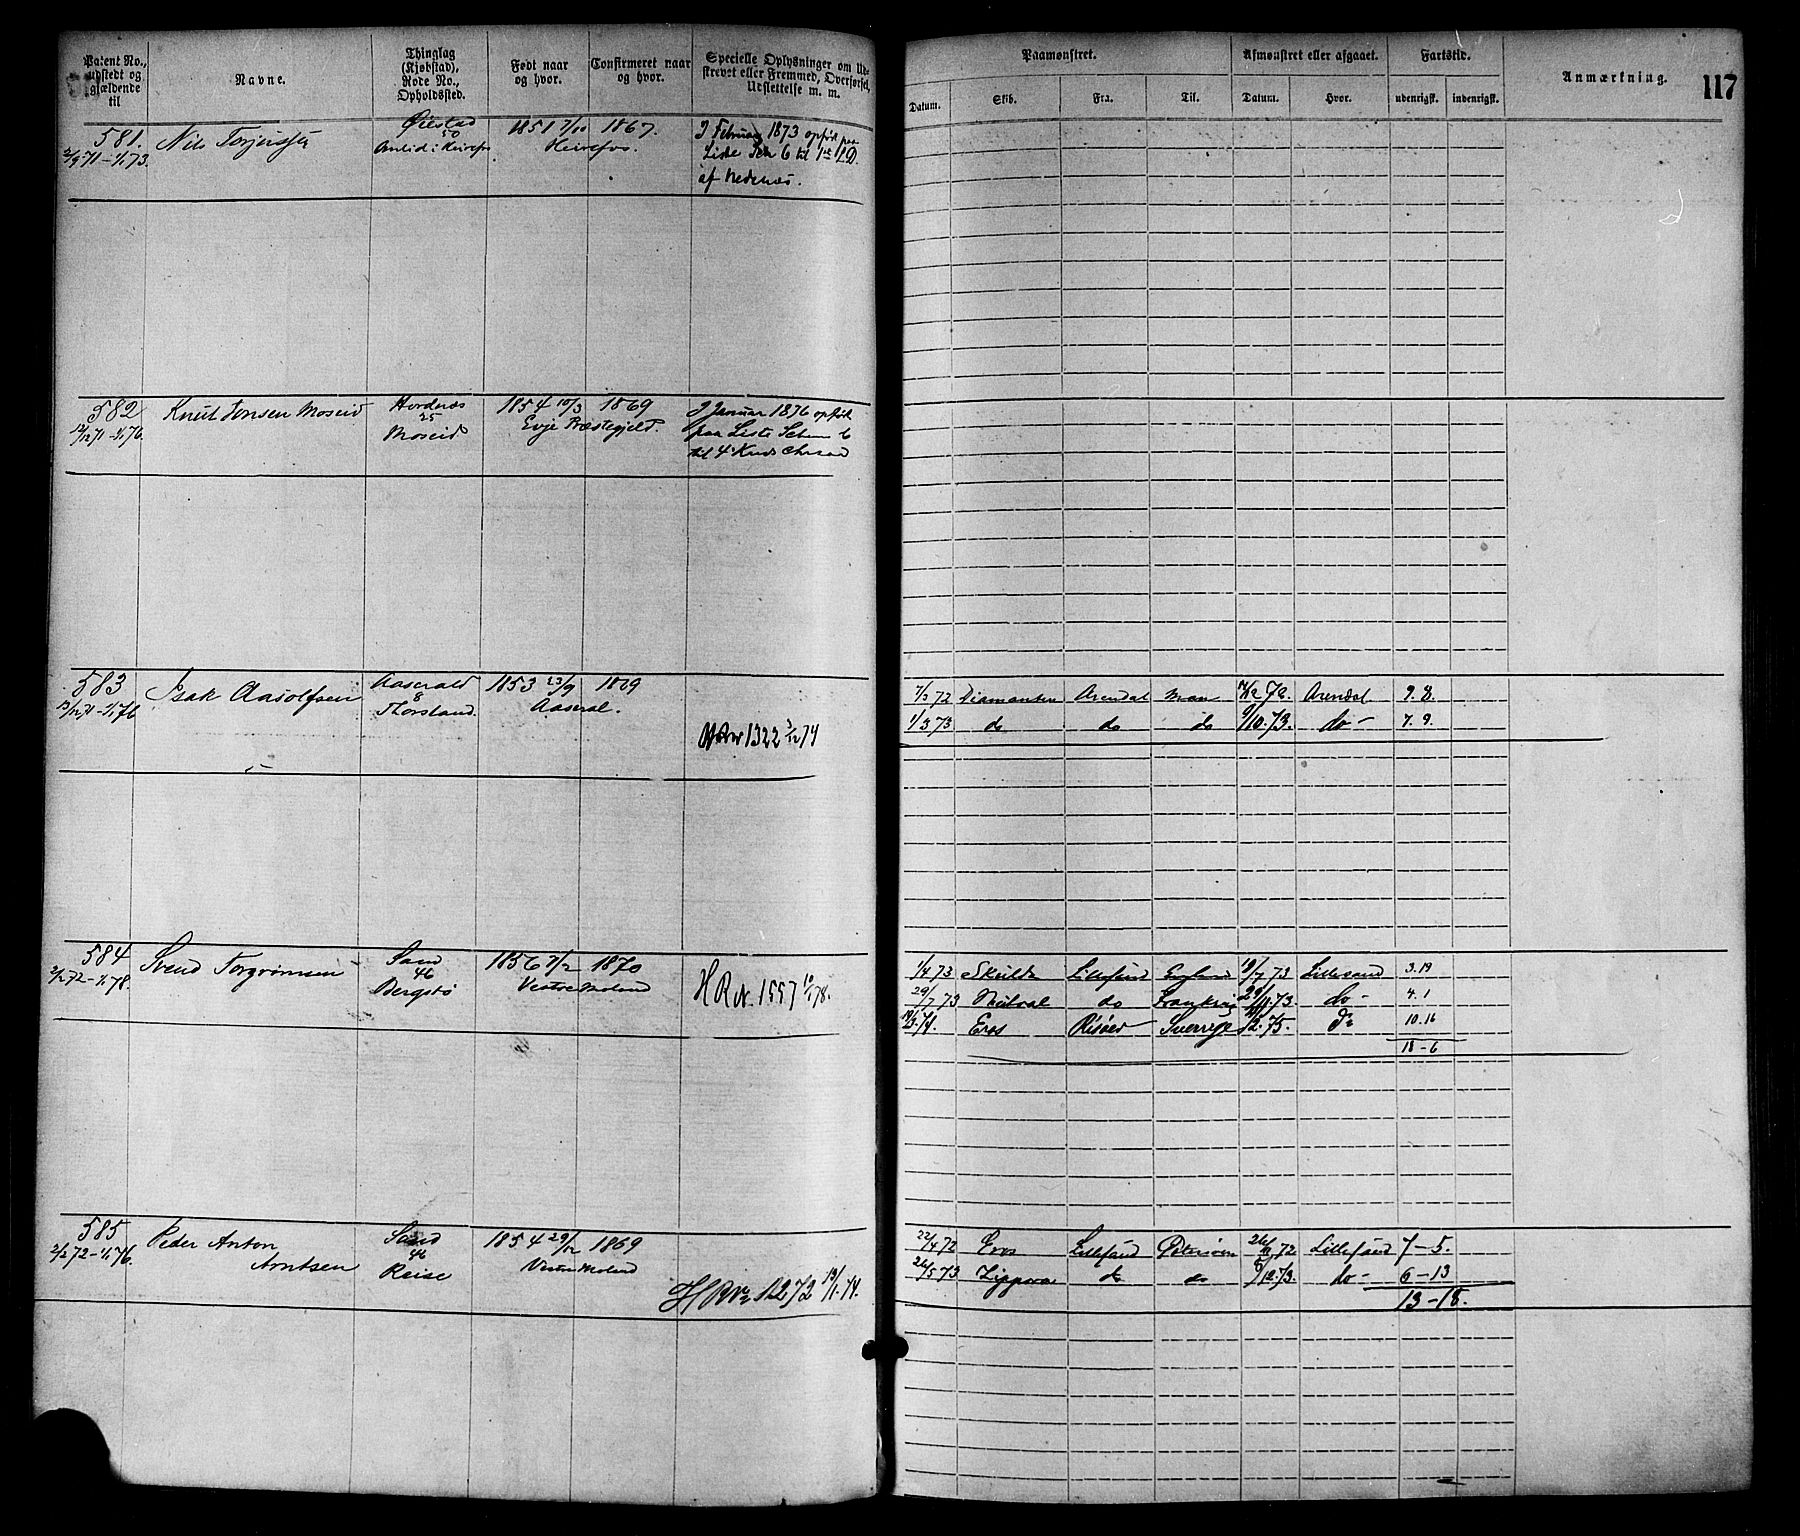 Patent No., udstedt og gjældende til
Navne.
Thinglag (Kjøbstad), Rode No., Opholdssted.
Født naar og hvor.
Confirmeret naar og hvor.
Specielle Oplysninger om Udstrevet eller Fremmed, Overførsel, Udslettelse m. m.
Paamønstret.
Afmønstret eller afgaaet.
Fartstid.
Anmærkning.
117
Datum.
Skib.
Fra.
Til.
Datum.
Hvor.
udenrigsk.
indenrigsk.
581. Nils Øiestad 1851 7/10 1867. I Februar 1873 opført paa
2/9 71-1/1 73. 50 Heirefos Liste 6 til 1ste
af Nedenæs.
582 Knut Jonsen Moseid Hordnæs 1854 10/3 1869 I Januar 1876 opført
12/12 71-1/1 76. 25 Evje Præstegjeld. paa Liste 6
Moseid til 4
583 Isak Aasolfsen Aaserald 1853 23/9 1869
13/12 71-1/1 76 8 Aaseral.
Thorsland. 1322 74
7/2 72 Diamanten Arendal 72. Arendal 9. 8.
1/3 73 do do do 9/10. 73. do- 7. 9.
584 Svend Torgrimsen Sand 1856 7/2 1870
2/2 72-1/1 78. 46 Vestre Moland H R N. 1557 78.
Bergstø
1/4 73 Lillesand England 19/7 73 Lillesand 3. 19
29/7 73 do 73. do- 4. 1
74. Eros Risøer Sverrige 2. 75. do 10. 16
18-6
585 Peder Anton Sand 1854 29/12 1869
2/2 72-1/1 76. Arntsen 46 Vestre Moland
Reise H R No 1272 19/1. 74.
22/4 72 Eros Lillesand 72 Lillesand 7-5.
26/5 73 do do 10. 73. do- 6-13
13-18.